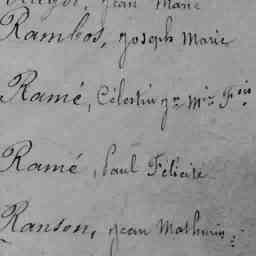 Jean Marie
Rambos, Joseph Marie
Ramé, Célestin Jn Mie Fois
Ramé, Paul Félicité
Ranson, Jean Mathurin